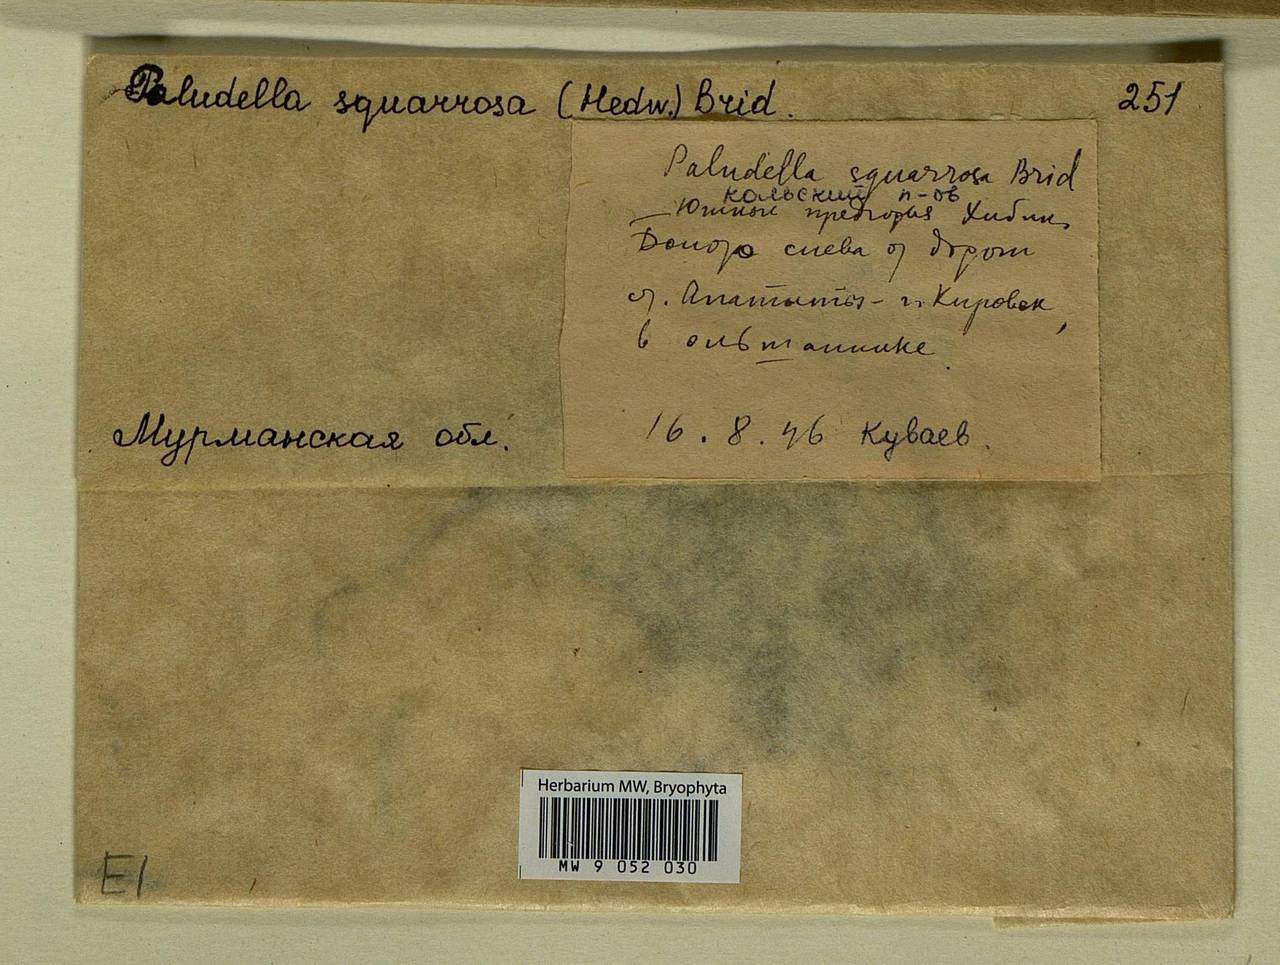 Paludella squarrosa (Hedw.) Brid.
251
Paludella squarrosa Brid
Кольский п-ов
Южные предгорья Хибин,
слева от дороги
ст. Апатиты - г. Кировск,
в ольшаннике.
16.8.46 Куваев.
Мурманская обл.
Herbarium MW, Bryophyta
MW 9 052 030
E1